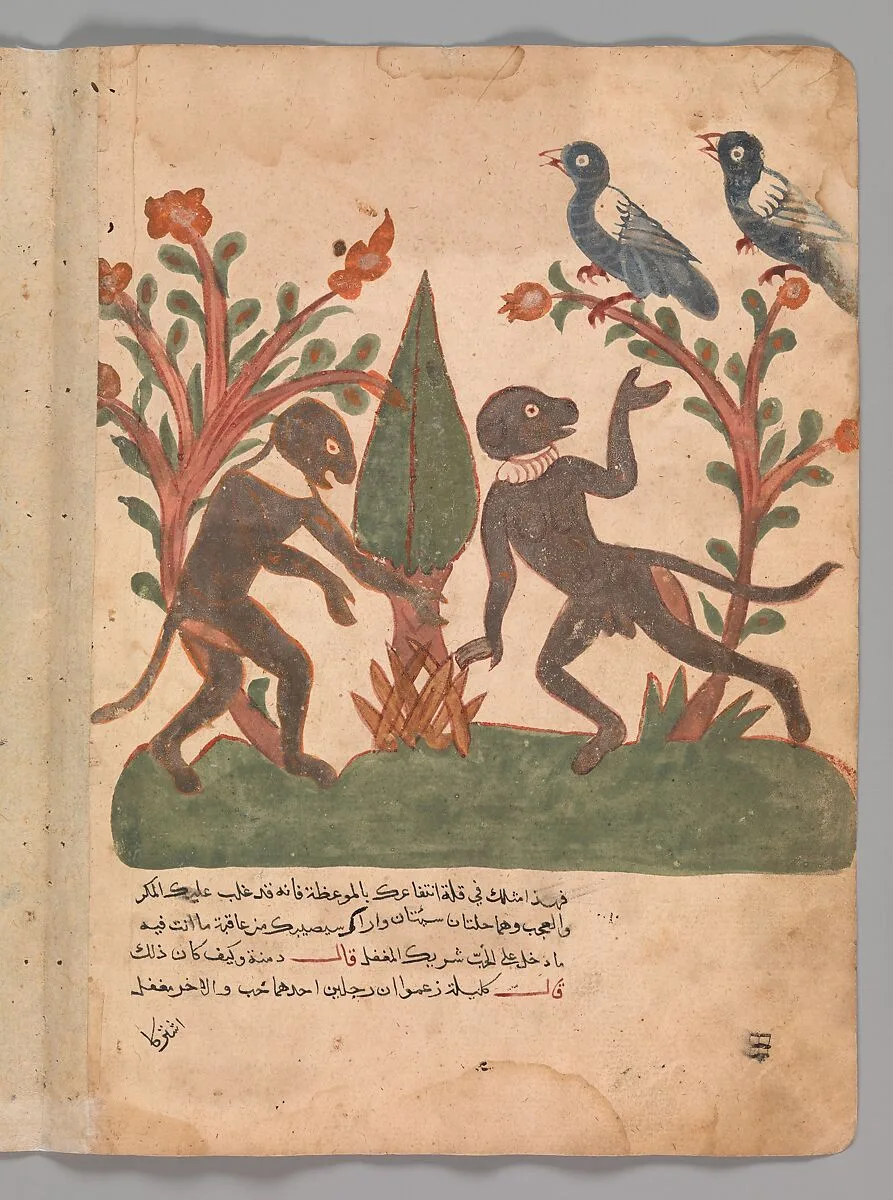 فهذا مثلك في قلة انتفاعك بالموعظة فانه قد غلب عليك المكر
والعجب وهما خلتان سيئتان واراك سيصيبك من عاقبة ما انت فيه
ما دخل على الخب شريك المغفل قال دمنة وكيف كان ذلك
قال كليلة زعموا ان رجلين احدهما خب والاخر مغفل
اشتركا